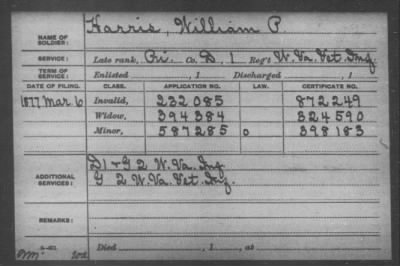 Harris, William P.
NAME OF SOLDIER:
SERVICE: Late rank, Pri. Co. D, 1 Reg't W. Va. Vet. Inf.
TERM OF SERVICE: Enlisted , 1 Discharged , 1
DATE OF FILING. CLASS. APPLICATION NO. LAW. CERTIFICATE NO.
1877 Mar 6 Invalid, 232 085 872 249
Widow, 394 384 324 590
Minor, 587 285 o 398 183
D 1 & G 2 W. Va. Inf.
ADDITIONAL SERVICES: G 2 W. Va. Vet. Inf.
REMARKS:
Died , 1 , at